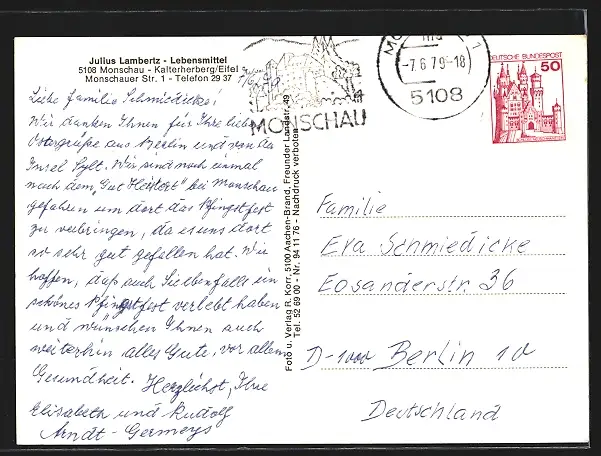 Julius Lambertz - Lebensmittel
5108 Monschau - Kalterherberg/Eifel
Monschauer Str. 1 - Telefon 29 37
Liebe Familie Schmiedicke!
Wir danken Ihnen für Ihre lieben
Ostergrüße aus Berlin und von der
Insel Sylt. Wir sind noch einmal
nach dem "Gut Heistert" bei Monschau
gefahren um dort das Pfingstfest
zu verbringen, da es uns dort
so sehr gut gefallen hat. Wir
hoffen, daß auch Sie ebenfalls ein
schönes Pfingstfest verlebt haben
und wünschen Ihnen auch
weiterhin alles Gute, vor allem
Gesundheit. Herzlichst, Ihre
Elisabeth und Rudolf
Arndt-Germeys
Foto u. Verlag R. Korr, 5100 Aachen-Brand, Freunder Landstr. 49
Tel. 52 69 00 - Nr. 94 11 76 - Nachdruck verboten
MONSCHAU
-7.6.79-18
5108
DEUTSCHE BUNDESPOST
50
Familie
Eva Schmiedicke
Eosanderstr. 36
D-1000 Berlin 10
Deutschland